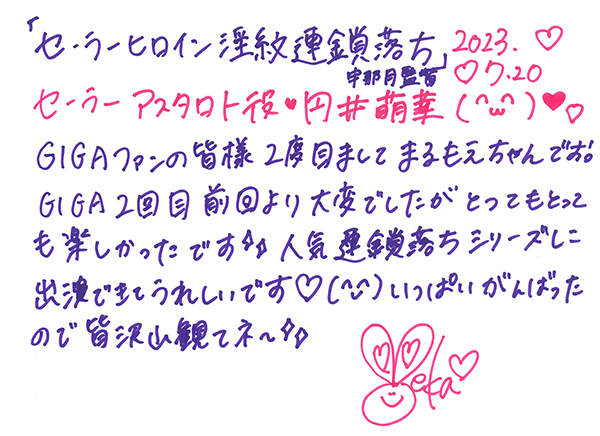 「セーラーヒロイン淫紋連鎖落ち」 2023.♡
宇那月監督 ♡7.20
セーラーアスタロト役♥円井萌華(^ω^)♥♡
GIGAファンの皆様 2度目まして まるもえちゃんでお!
GIGA2回目 前回より大変でしたが とってもとって
も楽しかったです 人気連鎖落ちシリーズに
出演できてうれしいです♡(^ω^)いっぱいがんばった
ので皆沢山観てネ〜